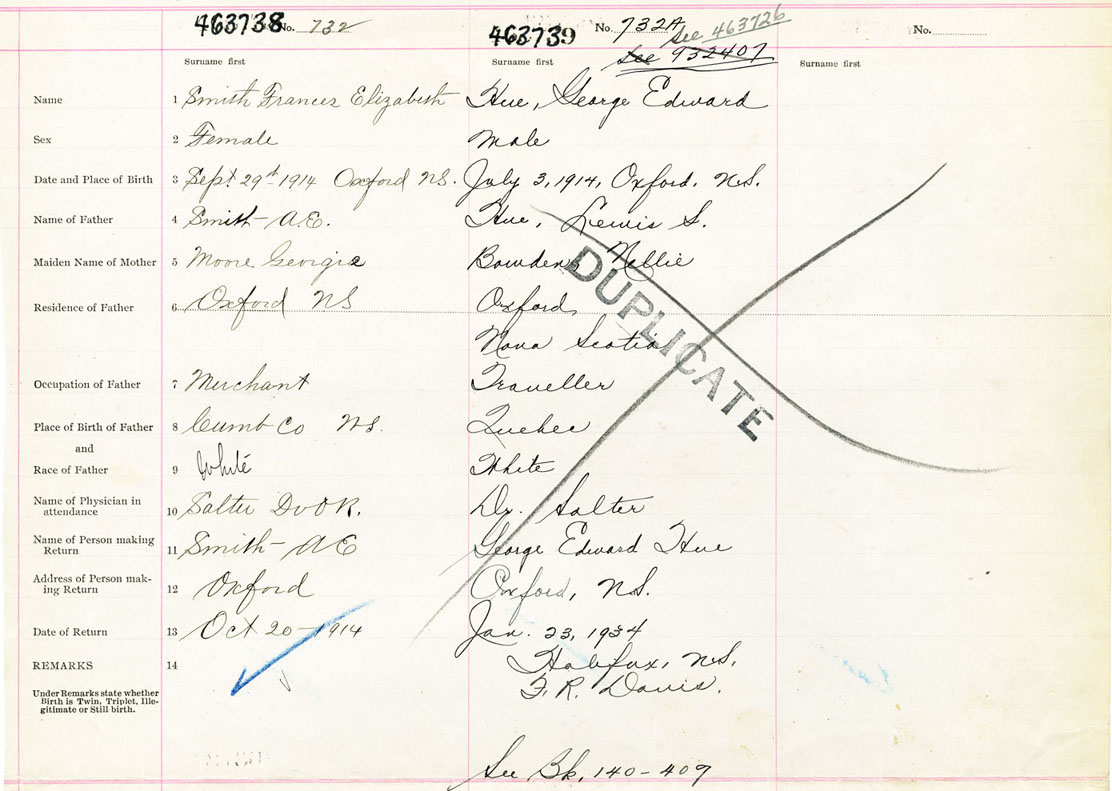 463738 No. 732
463739 No. 732A See 463726
See 932407
No.
Surname first Surname first Surname first
Name 1 Smith Frances Elizabeth Hue, George Edward
Sex 2 Female Male
Date and Place of Birth 3 Sept 29th 1914 Oxford NS. July 3, 1914, Oxford, N.S.
Name of Father 4 Smith A.E. Hue, Lewis S.
Maiden Name of Mother 5 Moore Georgia Bowden, Nellie
Residence of Father 6 Oxford NS Oxford,
Nova Scotia
DUPLICATE
Occupation of Father 7 Merchant Traveller
Place of Birth of Father 8 Cumb Co NS. Quebec
and
Race of Father 9 White White
Name of Physician in
attendance 10 Salter Dr O R. Dr. Salter
Name of Person making
Return 11 Smith A E George Edward Hue
Address of Person mak-
ing Return 12 Oxford Oxford, N.S.
Date of Return 13 Oct 20 1914 Jan. 23, 1934
REMARKS 14 Halifax, N.S.
F. R. Davis.
Under Remarks state whether
Birth is Twin, Triplet, Ille-
gitimate or Still birth.
See Bk, 140-409